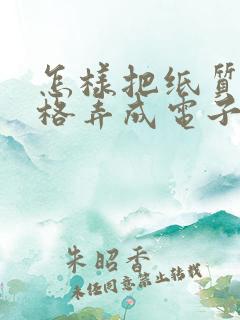 怎樣把纸質
格弄成電子
朱昭香
未经同意禁止转载